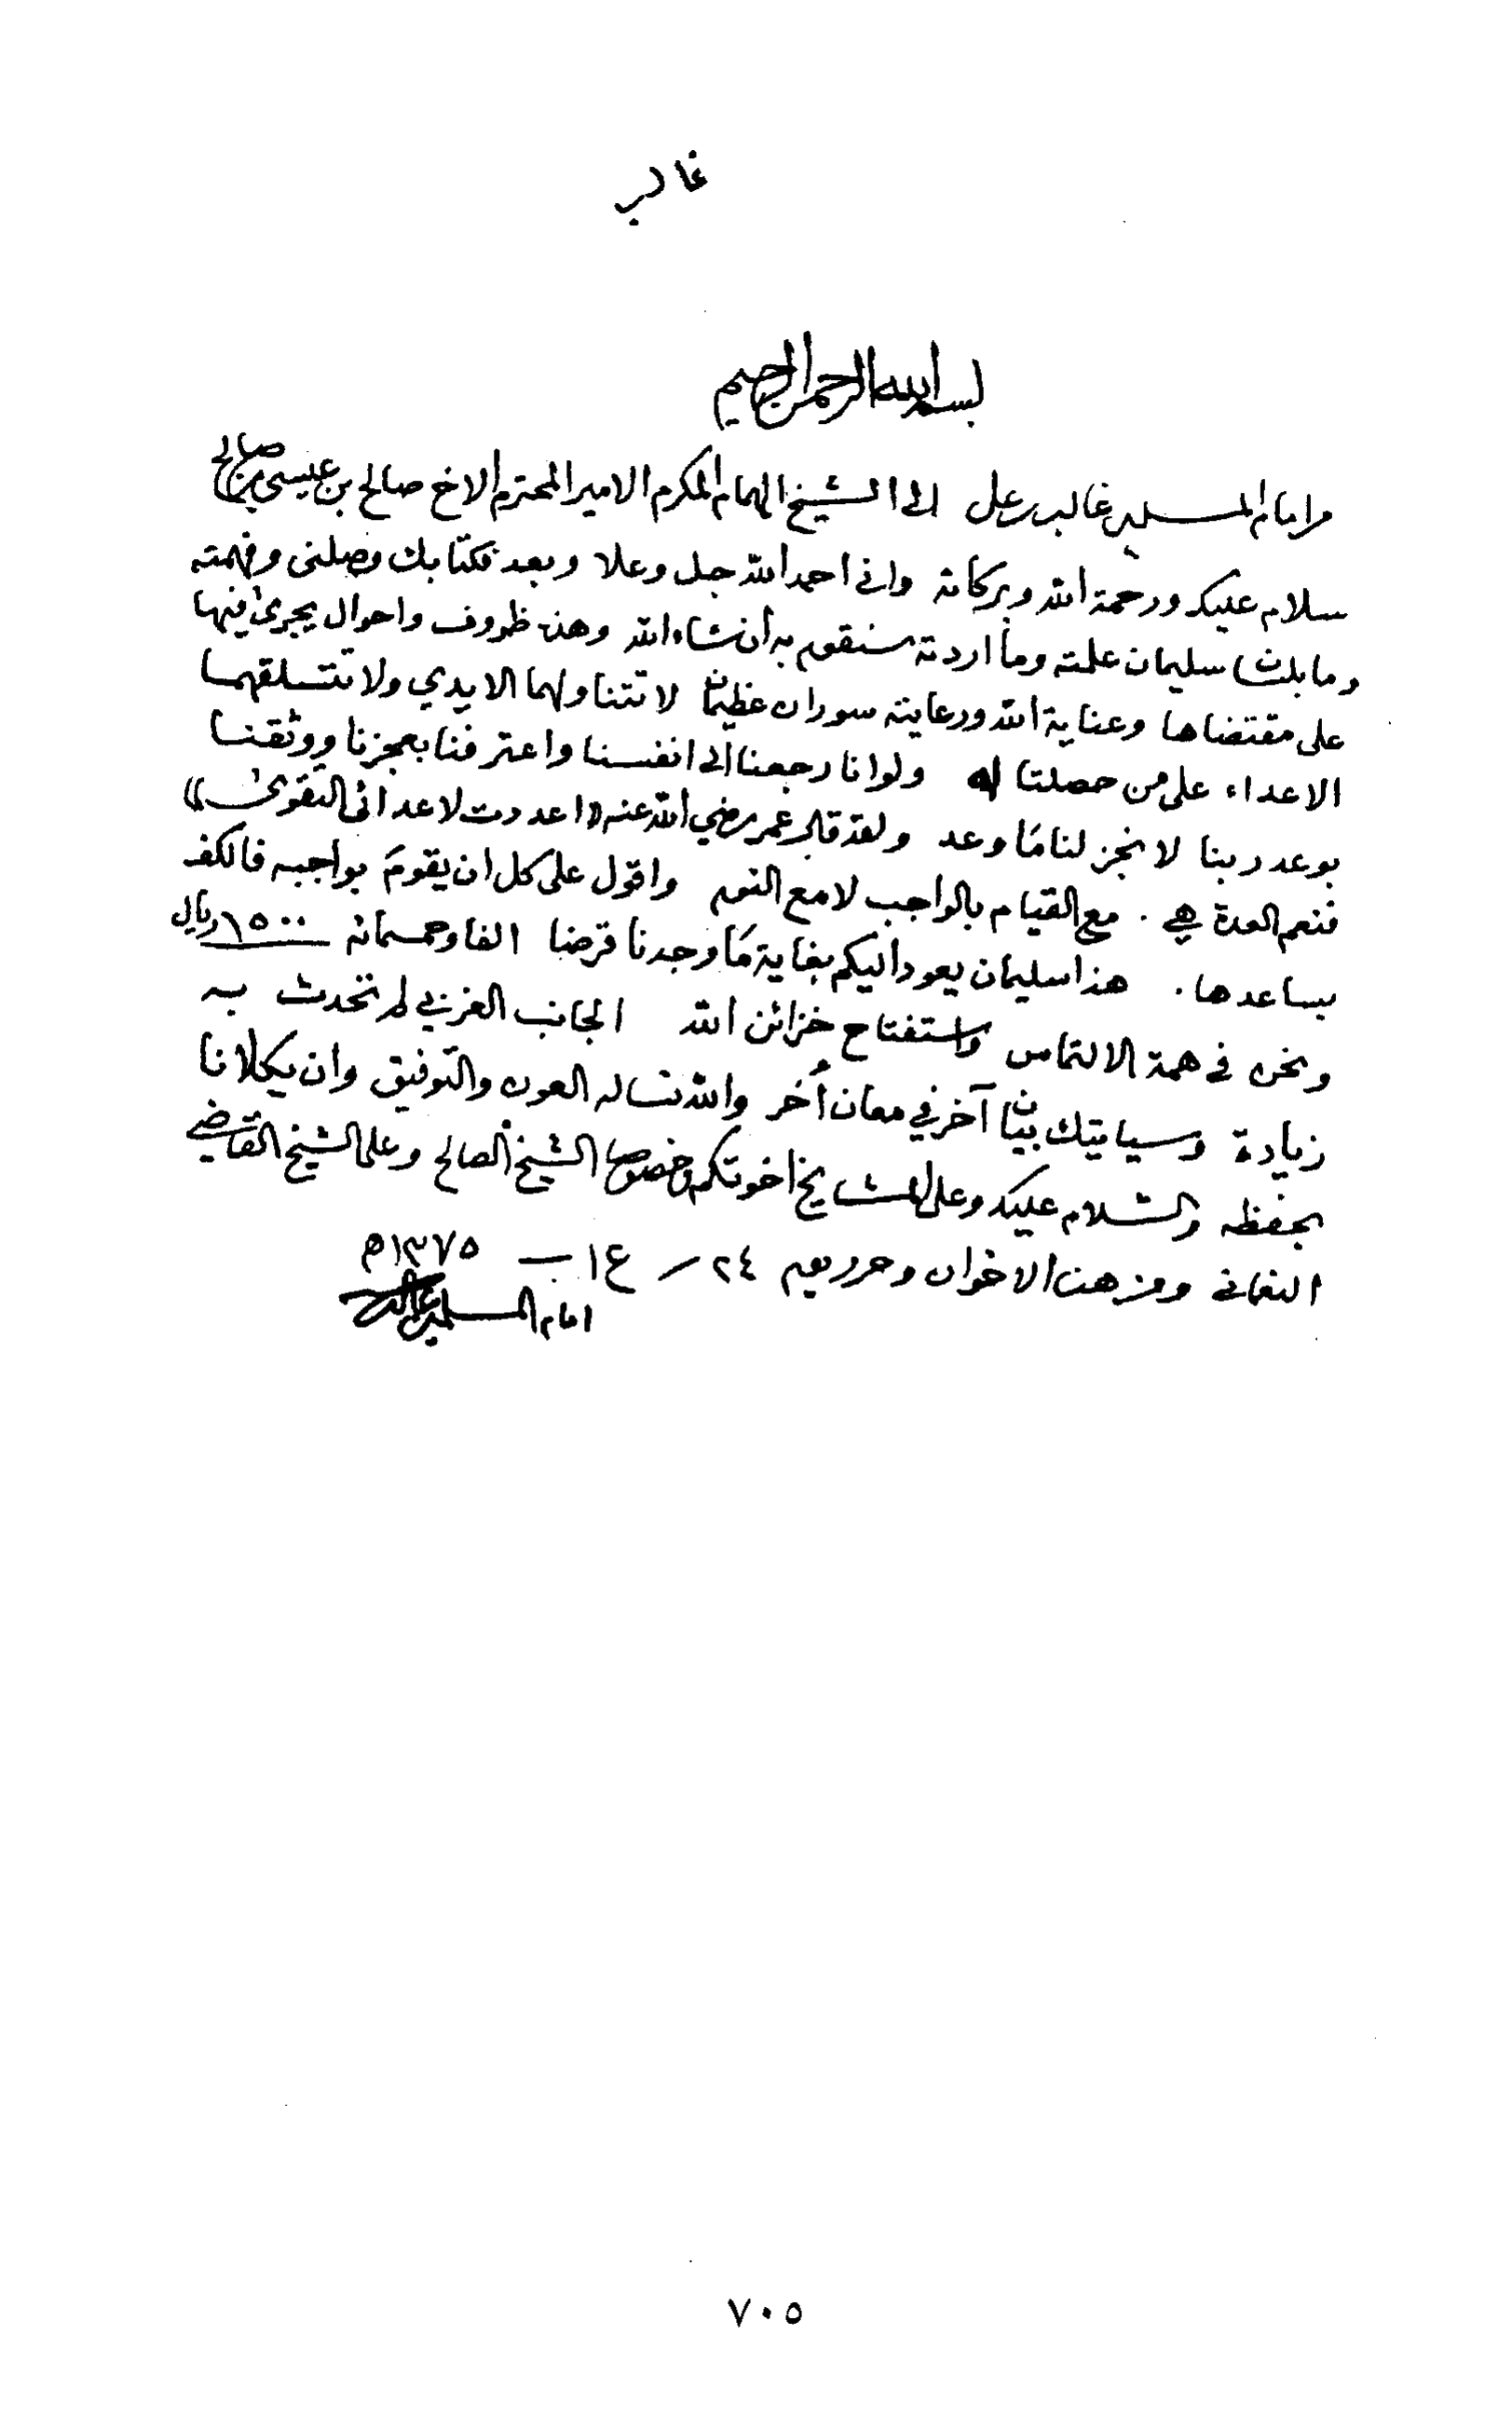 غالب
بسم الله الرحمن الرحيم
من امام المسلمين غالب بن علي الى الشيخ الهمام المكرم الامير المحترم الاخ صالح بن عيسى بن صالح
سلام عليك ورحمة الله وبركاته واني احمد الله جل وعلا وبعد فكتابك وصلني وفهمته
وما بلغ سليمان علمته وما اردته سنقوم به ان شاء الله وهذه ظروف واحوال يجرى فيها
على مقتضاها وعناية الله ورعايته سوران عظيمان لا تتناولهما الايدي ولا تتسلقهما
الاعداء على من حصلتا له ولو انا رجعنا الى انفسنا واعترفنا بعجزنا ووثقنا
بوعد ربنا لانجز لنا ما وعد ولقد قال عمر رضي الله عنه ((اعددت لاعدائي التقوى))
فنعم العدة هي . مع القيام بالواجب لا مع النوم واقول على كل ان يقوم بواجبه فالكف
بساعدها . هذا سليمان يعود اليكم بغاية ما وجدنا قرضا الفا وخمسمائه ١٥٠٠ ريال
ونحن في همة الالتماس واستفتاح خزائن الله الجانب الغربي لم تحدث به
زيادة وسيأتيك بيان آخر في معان أخر والله نساله العون والتوفيق وان يكلانا
بحفظه والسلام عليك وعلى المشايخ اخوتكم وخصوصا الشيخ الصالح وعلى الشيخ القاضي
ومن هنا الاخوان وحرر يوم ٢٤ / ع١ ـ ١٣٧٥ه
امام المسلمين غالب
٧٠٥